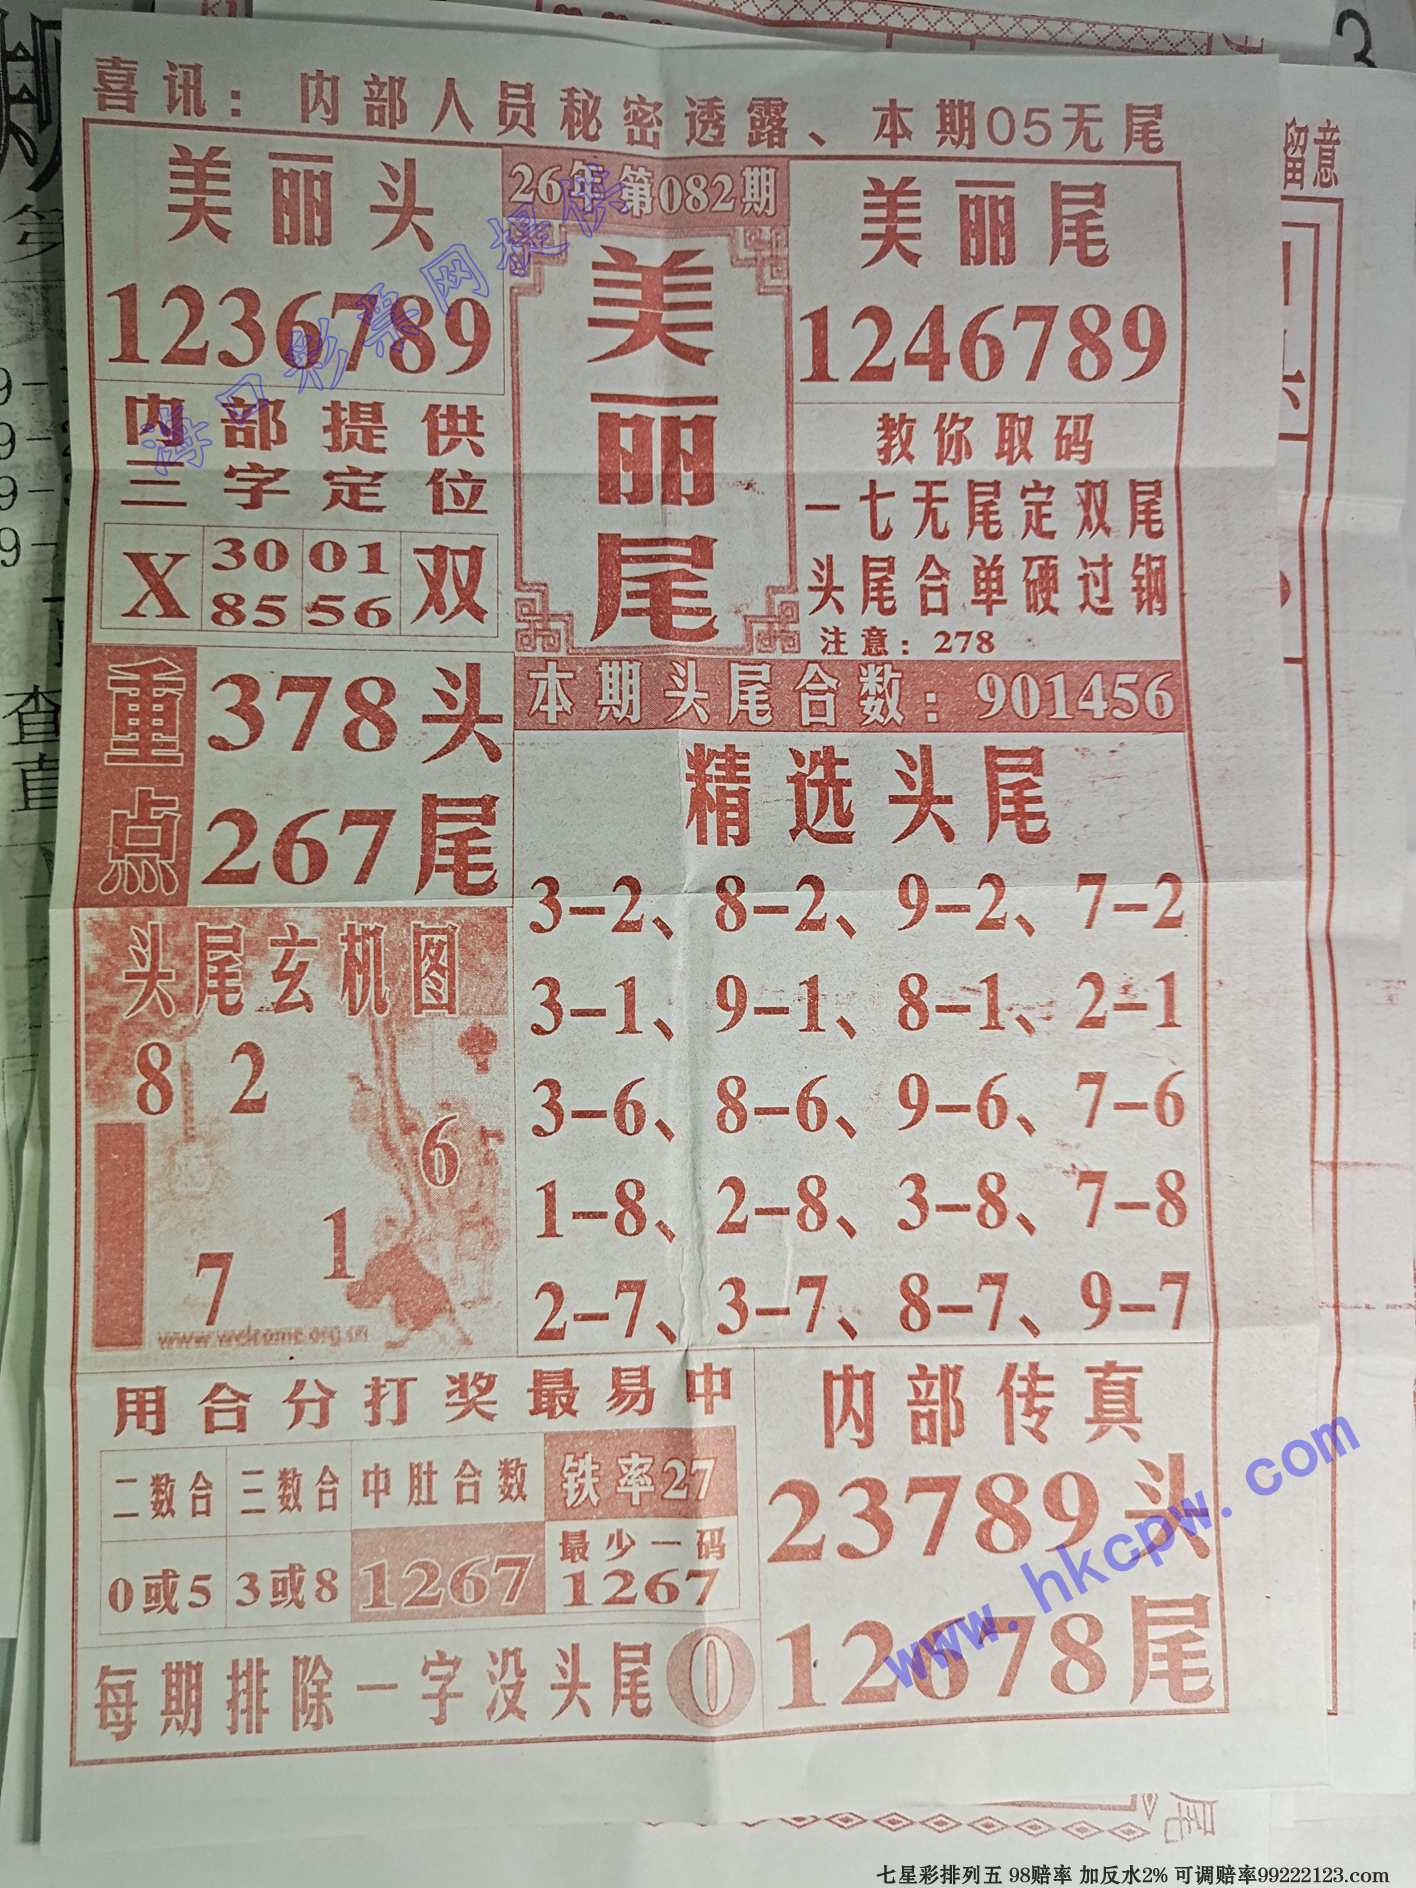 喜讯：内部人员秘密透露、本期05无尾
美丽头
1236789
26年第082期
美丽尾
美丽尾
1246789
内部提供
三字定位
X 30 01 双
85 56
教你取码
一七无尾定双尾
头尾合单硬过钢
注意：278
重点
378头
267尾
本期头尾合数：901456
精选头尾
3-2、8-2、9-2、7-2
3-1、9-1、8-1、2-1
3-6、8-6、9-6、7-6
1-8、2-8、3-8、7-8
2-7、3-7、8-7、9-7
头尾玄机图
8 2
6
1
7
www.welcome.org.cn
用合分打奖最易中
二数合 三数合 中肚合数 铁率27
0或5 3或8 1267 最少一码
1267
内部传真
23789头
12678尾
每期排除一字没头尾 0
海口彩票网提供
www.hkcpw.com
留意
3
查
直
尾
七星彩排列五 98赔率 加反水2% 可调赔率99222123.com